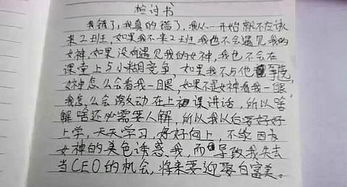 检讨书
我错了，我真的错了，我从一开始就不应该
来2班，如果我不来2班我也不会遇见我的
女神，如果没有遇见我的女神，我也不会在
课堂上与小胡竞争，如果我不与他
女神怎么会看我一眼，如果不是女神看我一眼
我怎么会激动在上课讲话，所以
还必需要人醒，所以我从今要好好
上学，天天学习，好好向上，不能因为
女神的美色诱惑我，而导致我失去
当CEO的机会，将来要迎娶白富美。